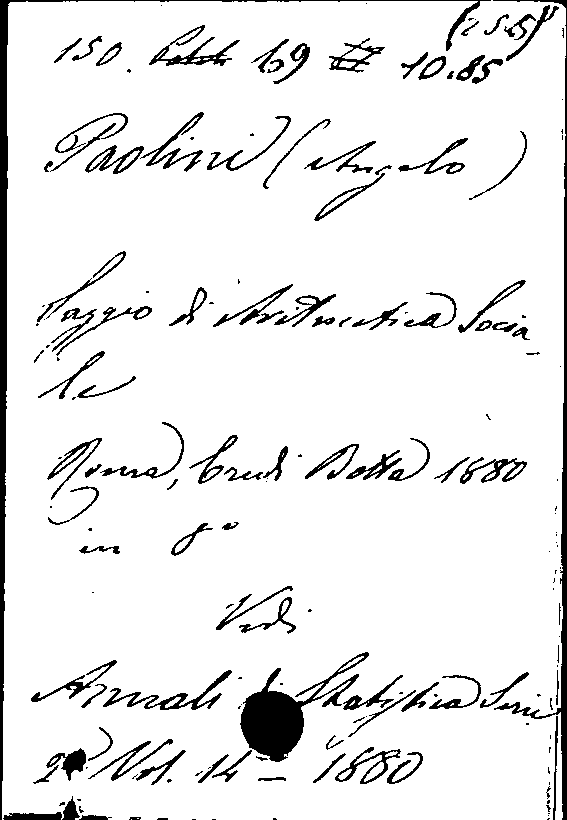 (255)
150. 69 10.85
Paolini (Angelo)
Saggio di Aritmetica Socia-
le
Roma, Eredi Botta 1880
in 8º
Vedi
Annali di Statistica Serie
2ª Vol. 14 - 1880